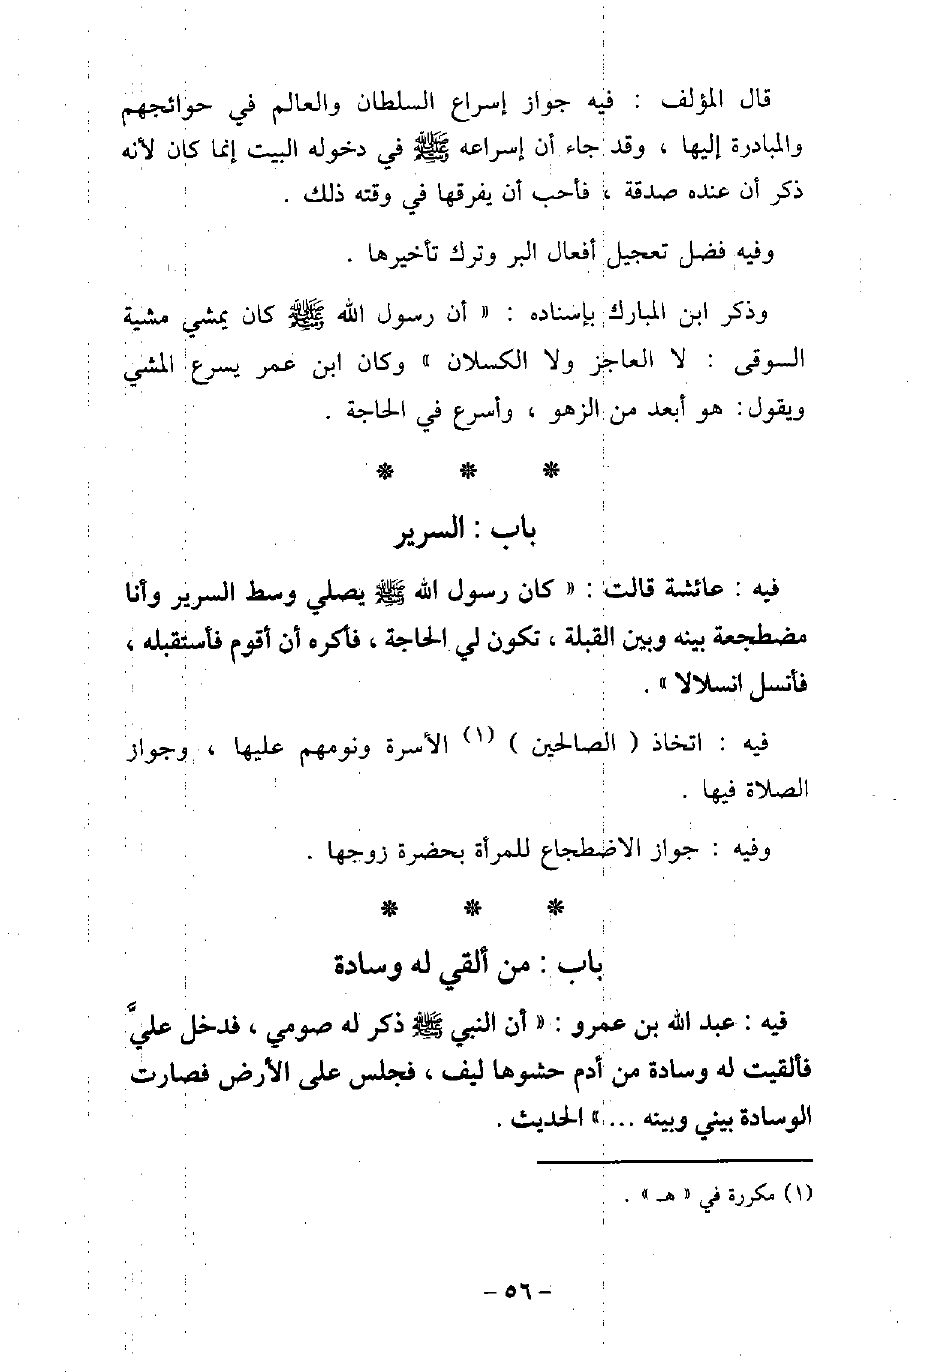 قال المؤلف : فيه جواز إسراع السلطان والعالم في حوائجهم
والمبادرة إليها ، وقد جاء أن إسراعه ﷺ في دخوله البيت إنما كان لأنه
ذكر أن عنده صدقة ، فأحب أن يفرقها في وقته ذلك .
وفيه فضل تعجيل أفعال البر وترك تأخيرها .
وذكر ابن المبارك بإسناده : « أن رسول الله ﷺ كان يمشي مشية
السوقى : لا العاجز ولا الكسلان » وكان ابن عمر يسرع المشي
ويقول : هو أبعد من الزهو ، وأسرع في الحاجة .
* * *
باب : السرير
فيه : عائشة قالت : « كان رسول الله ﷺ يصلي وسط السرير وأنا
مضطجعة بينه وبين القبلة ، تكون لي الحاجة ، فأكره أن أقوم فأستقبله ،
فأنسل انسلالا » .
فيه : اتخاذ ( الصالحين ) (١) الأسرة ونومهم عليها ، وجواز
الصلاة فيها .
وفيه : جواز الاضطجاع للمرأة بحضرة زوجها .
* * *
باب : من ألقي له وسادة
فيه : عبد الله بن عمرو : « أن النبي ﷺ ذكر له صومي ، فدخل عليَّ
فألقيت له وسادة من أدم حشوها ليف ، فجلس على الأرض فصارت
الوسادة بيني وبينه ... » الحديث .
(١) مكررة في « هـ » .
- ٥٦ -